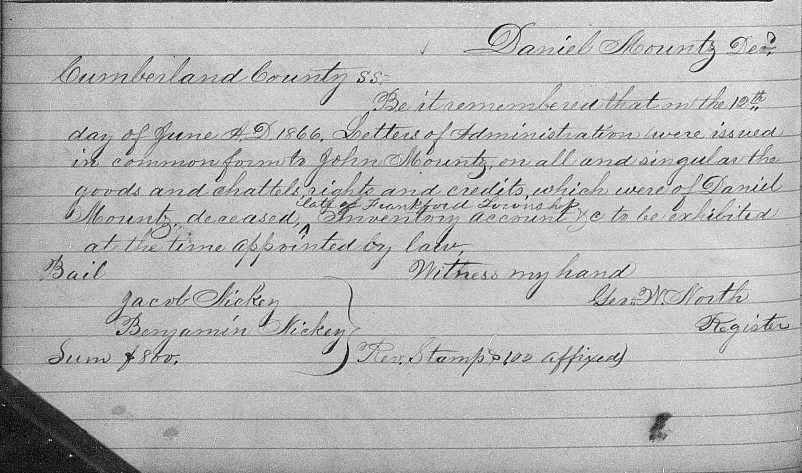 Daniel Mountz Decd.
Cumberland County SS=
Be it remembered that on the 12th
day of June A D 1866, Letters of Administration were issued
in common form to John Mountz, on all and singular the
goods and chattels, rights and credits, which were of Daniel
late of Frankford Township
Mountz, deceased, Inventory account &c to be exhibited
at the time appointed by law,
Bail Witness my hand
Jacob Nickey Geo. W. North
Benjamin Nickey Register
Sum $800. (Rev. Stamp $1,00 affixed)